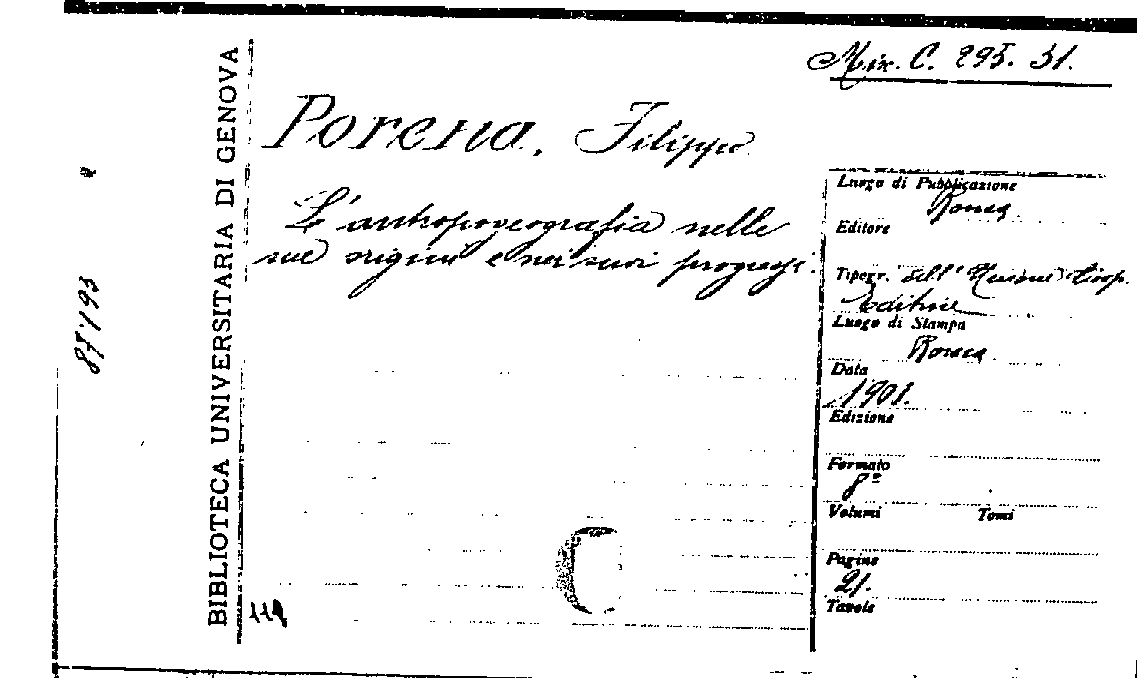 Mix. C. 295. 31.
BIBLIOTECA UNIVERSITARIA DI GENOVA
87.193
Porena, Filippo
L'antropogeografia nelle
sue origini e nei suoi progressi.
Luogo di Pubblicazione
Roma
Editore
Tipogr. dell' Unione Coop.
Editrice
Luogo di Stampa
Roma
Data
1901.
Edizione
Formato
8º
Volumi Tomi
Pagine
21.
Tavole